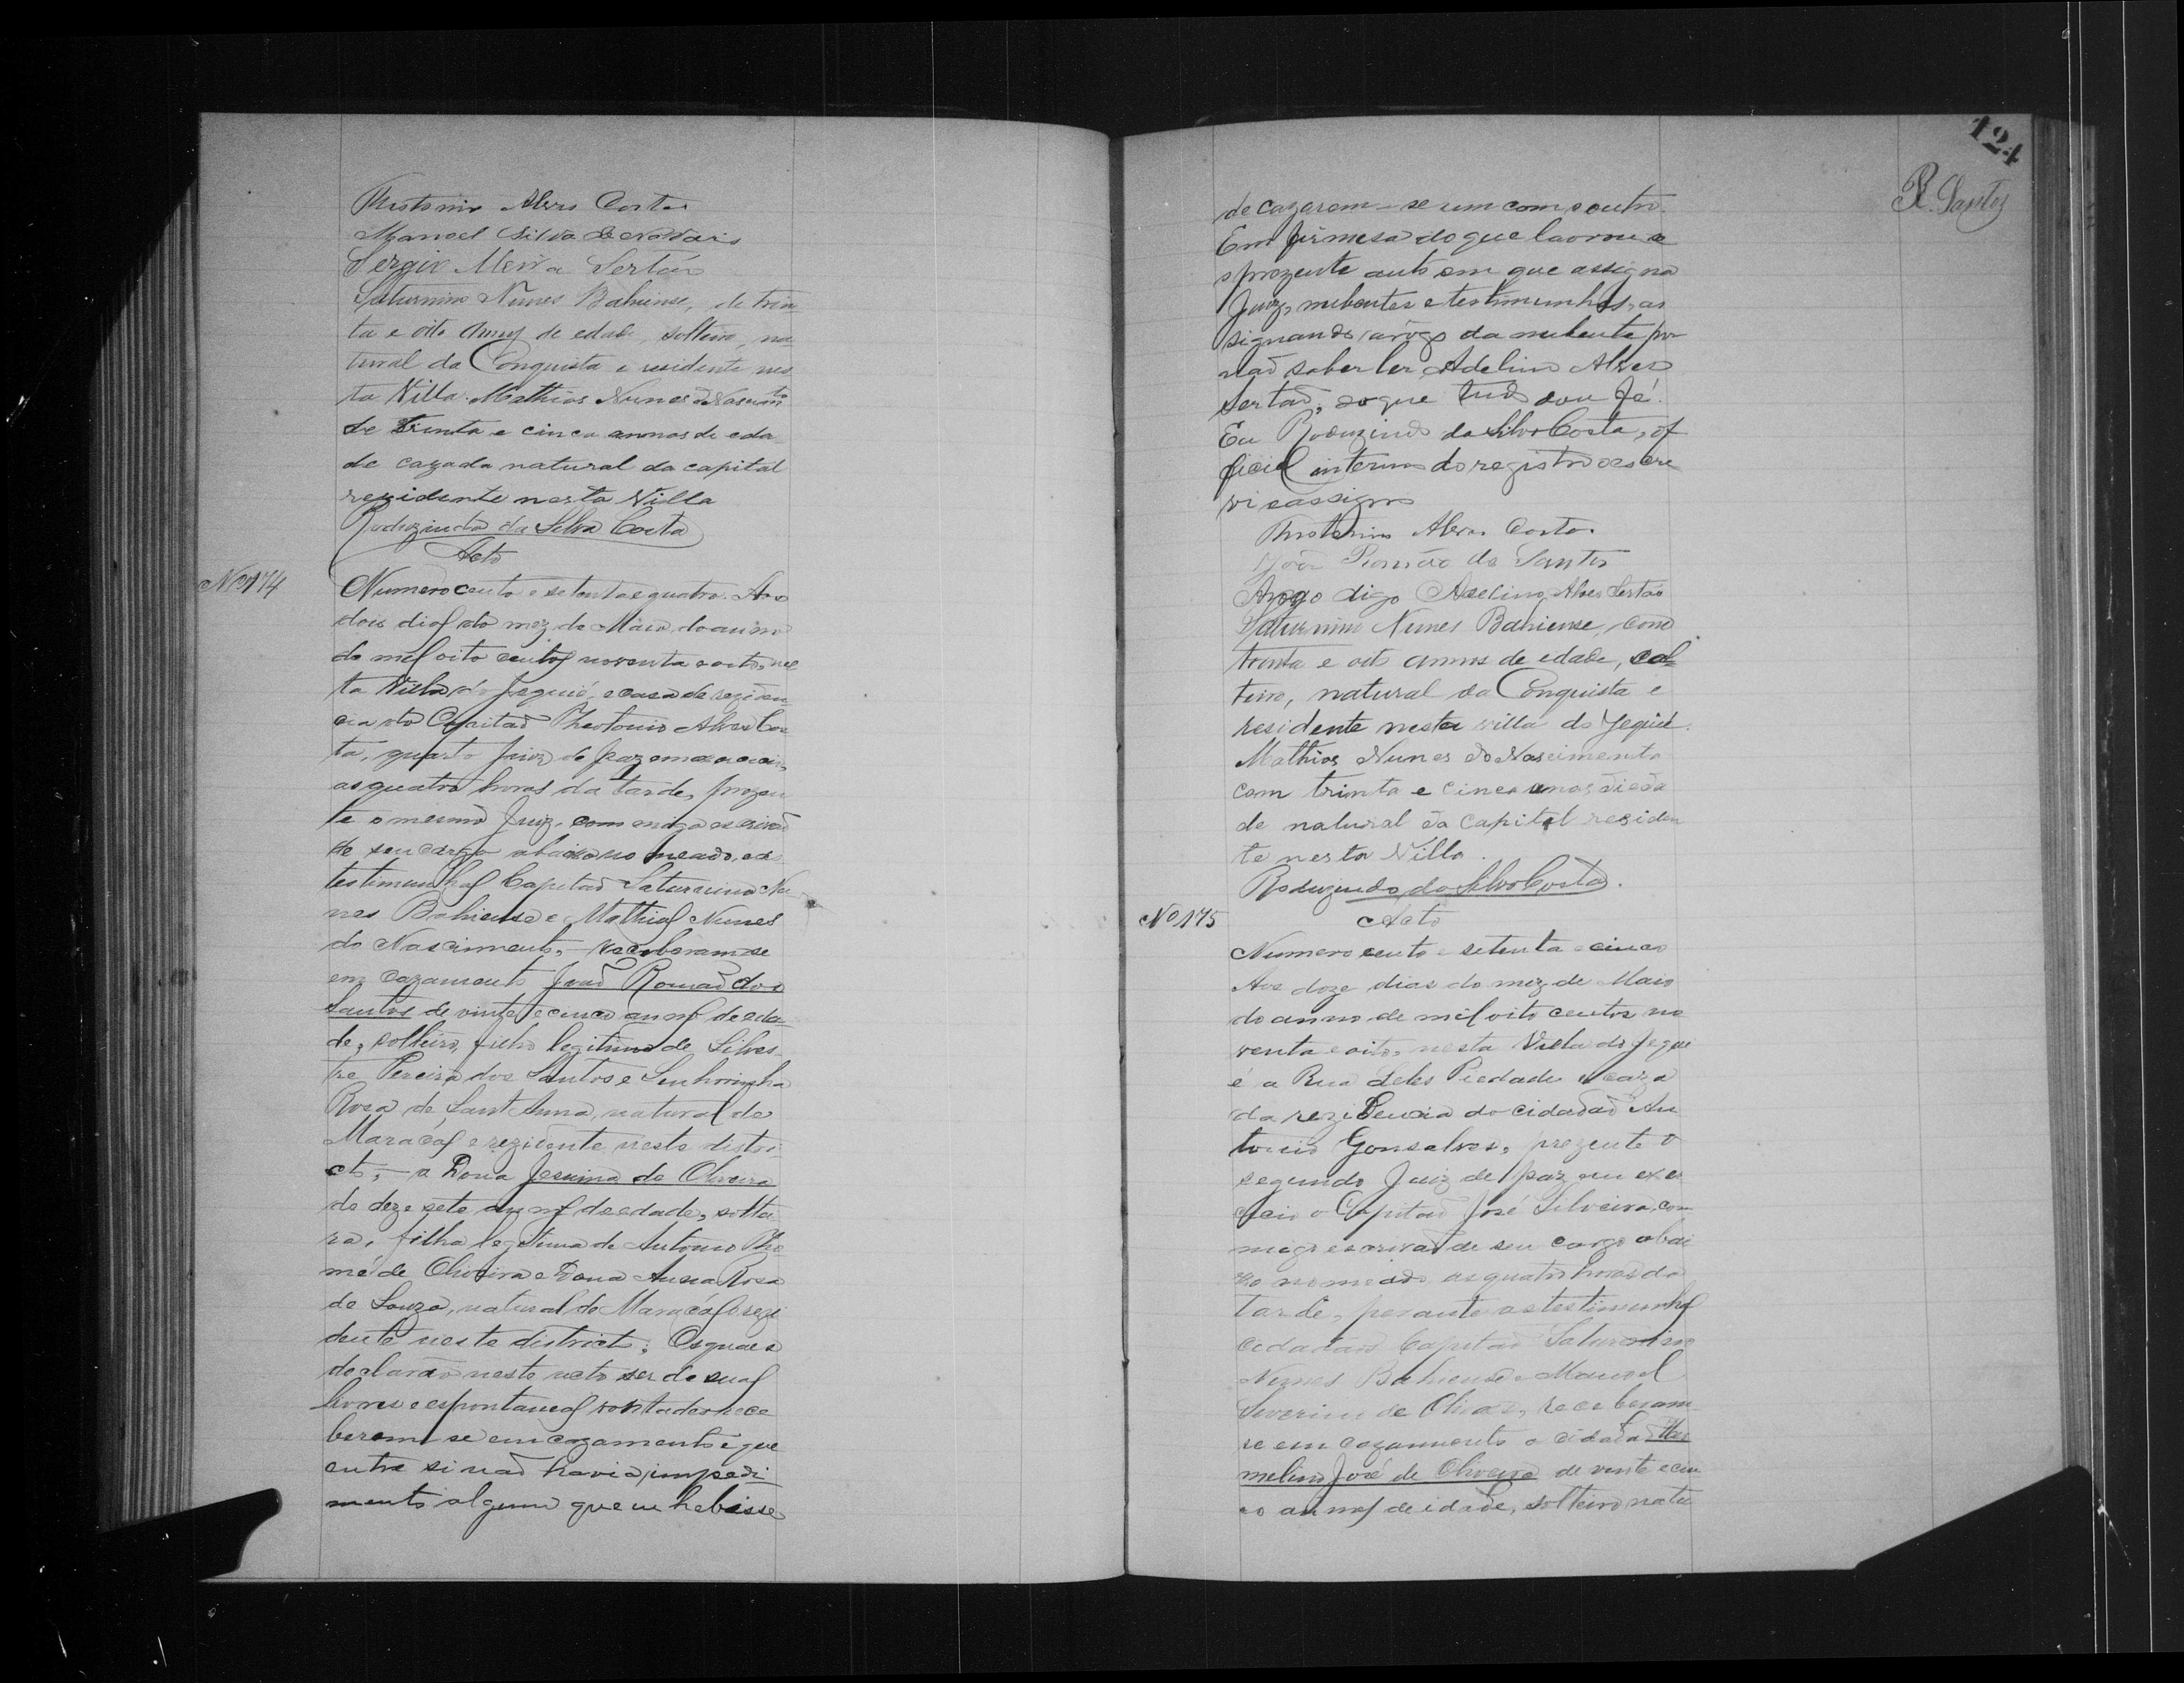 Theotonio Alves Costa
Manoel Silva de Novais
Sergio Meira Sertão
Saturnino Nunes Bahiense, de trin
ta e oito annos de edade, solteiro, na
tural da Conquista e residente nes
ta Villa. Mathias Nunes do Nascimto
de trinta e cinco annos de eda
de cazado natural da capital
rezidente nesta Villa
Roduzindo da Silva Costa
Acto
No 174
Numero cento e setenta e quatro. Aos
dois dias do mez de Maio do anno
de mil oito centos noventa e oito, nes
ta Villa do Jequié, e casa de reziden
cia do Capitão Theotonio Alves Cos
ta, quarto Juiz de paz em
as quatro horas da tarde, prezen
te o mesmo Juiz, commigo escrivão
de seu cargo abaixo nomeado, e as
testimunhas Capitão Saturnino Nu
nes Bahiense e Mathias Nunes
do Nascimento, receberam se
em cazamento João Romão dos
Santos de vinte e cinco annos de eda
de, solteiro, filho legitimo de Silves
tre Pereira dos Santos e Senhorinha
Rosa de Sant Anna, natural de
Maracás e rezidente neste distri
cto, a Dona Jesuina de Oliveira
de deze sete annos de edade, soltei
ra, filha legitima de Antonio Tho
mé de Oliveira e Dona Anna Rosa
de Souza, natural de Maracás e rezi
dente neste districto; Os quaes
declarão neste acto ser de suas
livres e espontaneas vontades rece
berem se em cazamento e que
entre si não havia impedi
mento algum que inhebisse
124
R. Santos
de cazarem-se um com o outro.
Em firmesa do que lavrou se
o prezente auto em que assigna
Juiz, nubentes e testimunhas, as
signando arôgo da nubente por
não saber ler Adelino Alves
Sertão, do que tudo dou fé.
Eu Roduzindo da Silva Costa, of
ficial interino do registro o escre
vi e assigno
Theotonio Alves Costa
João Romão do Santos
Arogo digo Adelino Alves Sertão
Saturnino Nunes Bahiense, com
trinta e oito annos de edade, sol
teiro, natural da Conquista e
residente nesta villa do Jequié.
Mathias Nunes do Nascimento
com trinta e cinco anos di eda
de natural da capital residen
te nesta Villa.
Roduzindo da Silva Costa.
No 175
Acto
Numero cento e setenta e cinco
Aos doze dias do mez de Maio
do anno de mil oito centos no
venta e oito, nesta Villa do Jequi
é a Rua Piedade e caza
da rezidencia do cidadão An
tonio Gonsalves, prezente o
segundo Juiz de paz em exer
cicio o Capitão José Silveira, com
migo escrivão de seu cargo abai
xo nomeado as quatro horas da
tarde, perante as testimunhas
cidadãos Capitão Saturnino
Nunes Bahiense e Manoel
Severino de receberam
se em cazamento o cidadão
melino José de Oliveira de vinte e cin
co annos de idade, solteiro natu